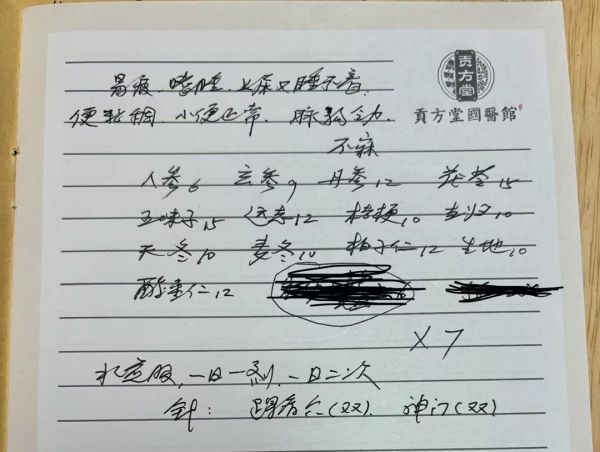 贡方堂
貢方堂國醫館
易疲、嗜睡、上床又睡不着,
便黏稠 小便正常. 脉弱无力.
不寐
人参6 玄参9 丹参12 茯苓15
五味子15 远志12 桔梗10 当归10
天冬10 麦冬10 柏子仁12 生地10
酸枣仁12
×7
水煎服, 一日一剂、一日二次
针: (双). 神门(双)